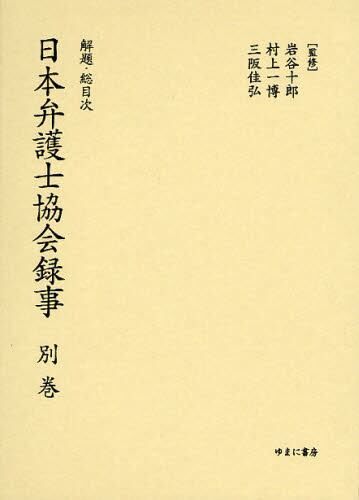 [監修]
岩谷十郎
村上一博
三阪佳弘
解題・総目次
日本弁護士協会録事 別巻
ゆまに書房